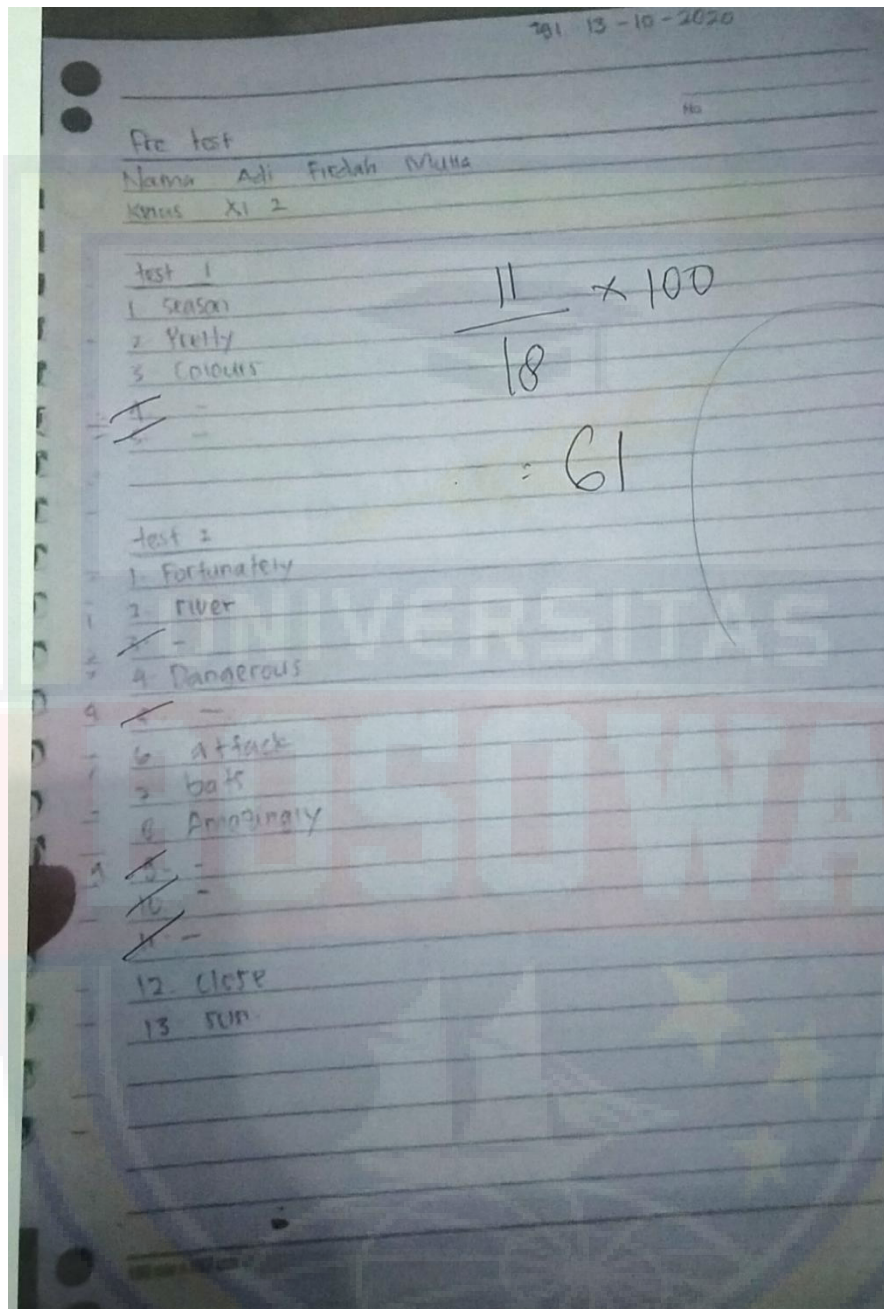 tgl 13-10-2020
No
Pre test
Nama Adi Firdah Mulia
Kelas XI 2
test 1
1 season
2 Pretty
3 Colours
4 -
5 -
11/18 × 100
= 61
test 2
1. Fortunately
2 river
3 -
4 Dangerous
5 -
6 attack
7 bats
8 Amazingly
9 -
10 -
11 -
12. close
13 run
UNIVERSITAS
BOSOWA